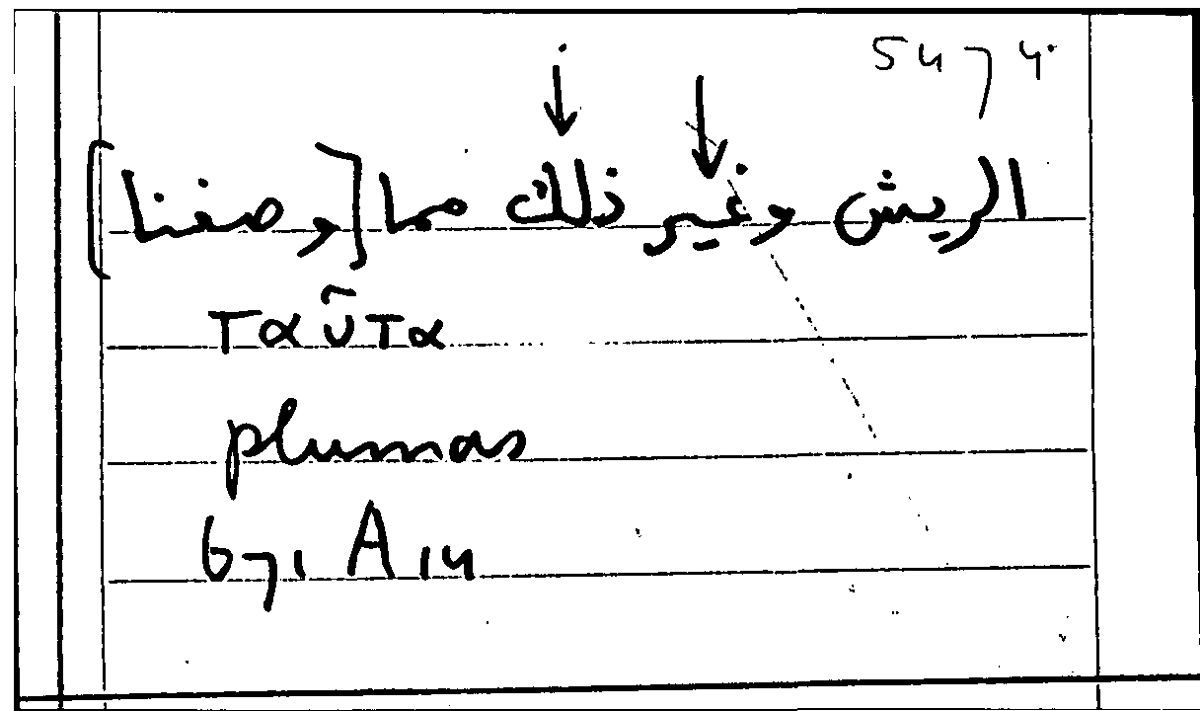 5474
↓ ↓
الريش وغير ذلك مما [وصفنا]
ταῦτα
plumas
671 A 14